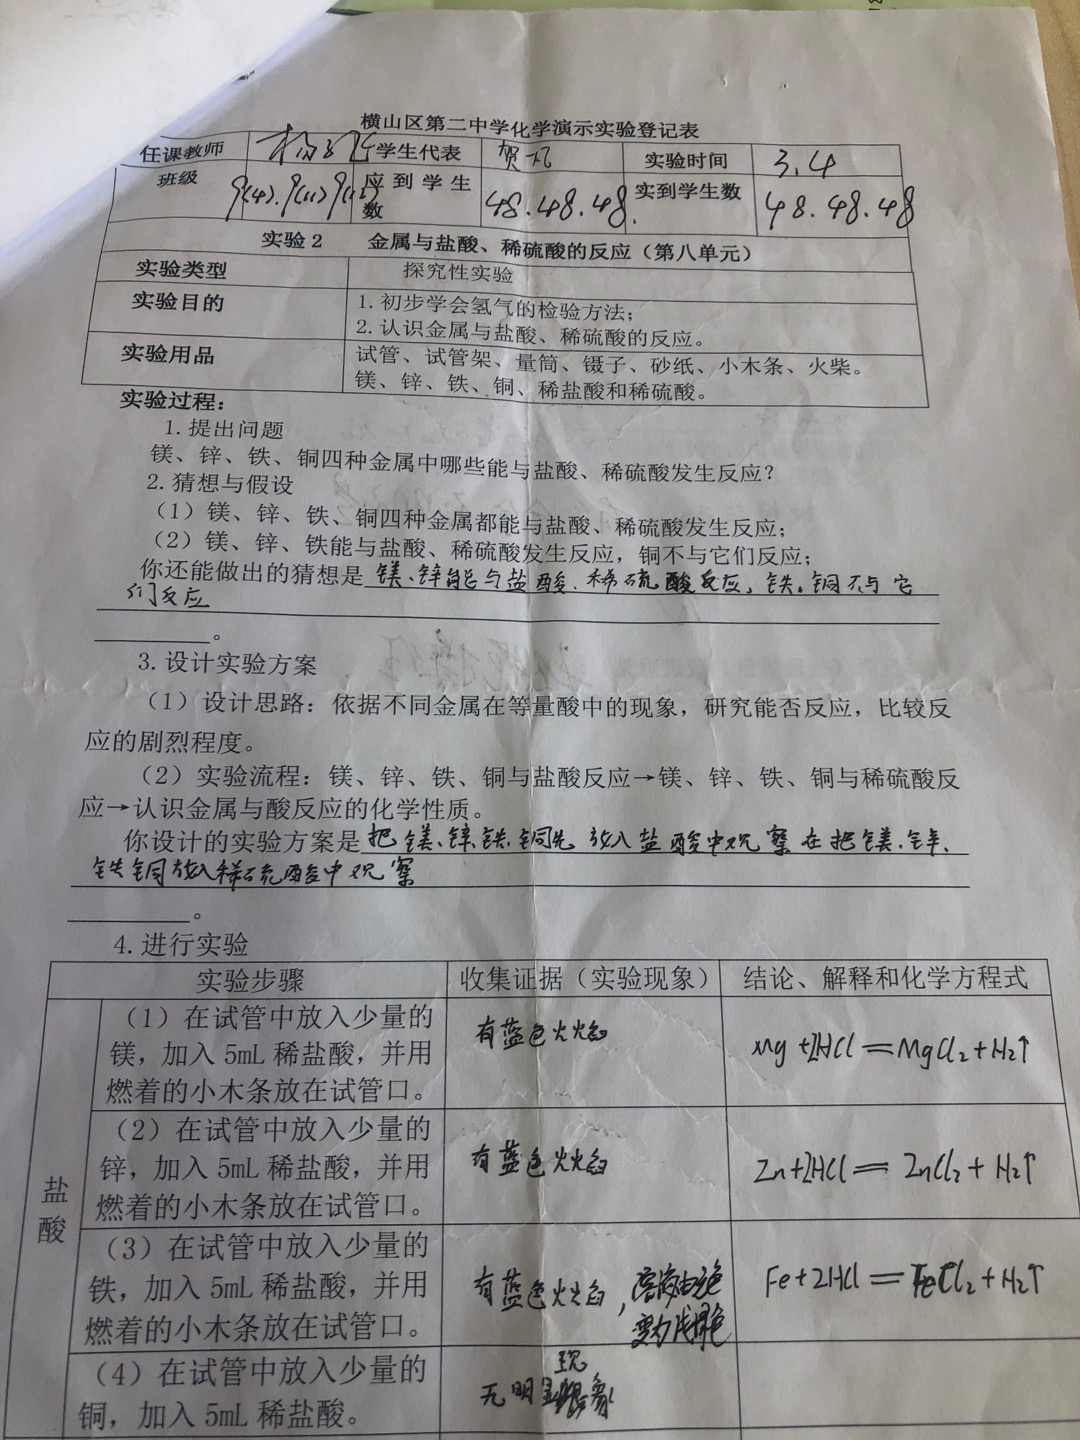 横山区第二中学化学演示实验登记表
任课教师 学生代表 贺凡 实验时间 3.4
班级 9(4).9(11) 应到学生数 48.48.48. 实到学生数 48.48.48
实验2 金属与盐酸、稀硫酸的反应（第八单元）
实验类型 探究性实验
实验目的 1.初步学会氢气的检验方法；
2.认识金属与盐酸、稀硫酸的反应。
实验用品 试管、试管架、量筒、镊子、砂纸、小木条、火柴。
镁、锌、铁、铜、稀盐酸和稀硫酸。
实验过程：
1.提出问题
镁、锌、铁、铜四种金属中哪些能与盐酸、稀硫酸发生反应？
2.猜想与假设
（1）镁、锌、铁、铜四种金属都能与盐酸、稀硫酸发生反应；
（2）镁、锌、铁能与盐酸、稀硫酸发生反应，铜不与它们反应；
你还能做出的猜想是 镁、锌能与盐酸、稀硫酸反应，铁。铜不与它
们反应
。
3.设计实验方案
（1）设计思路：依据不同金属在等量酸中的现象，研究能否反应，比较反
应的剧烈程度。
（2）实验流程：镁、锌、铁、铜与盐酸反应→镁、锌、铁、铜与稀硫酸反
应→认识金属与酸反应的化学性质。
你设计的实验方案是 把镁、锌、铁、铜先放入盐酸中观察 在把镁、锌、
铁铜放入稀硫酸中观察
。
4.进行实验
实验步骤 收集证据（实验现象） 结论、解释和化学方程式
盐酸
（1）在试管中放入少量的
镁，加入 5mL 稀盐酸，并用
燃着的小木条放在试管口。
有蓝色火焰
Mg+2HCl=MgCl₂+H₂↑
（2）在试管中放入少量的
锌，加入 5mL 稀盐酸，并用
燃着的小木条放在试管口。
有蓝色火焰
Zn+2HCl=ZnCl₂+H₂↑
（3）在试管中放入少量的
铁，加入 5mL 稀盐酸，并用
燃着的小木条放在试管口。
有蓝色火焰，溶液由无色
变为浅绿色
Fe+2HCl=FeCl₂+H₂↑
（4）在试管中放入少量的
铜，加入 5mL 稀盐酸。
无明显现象